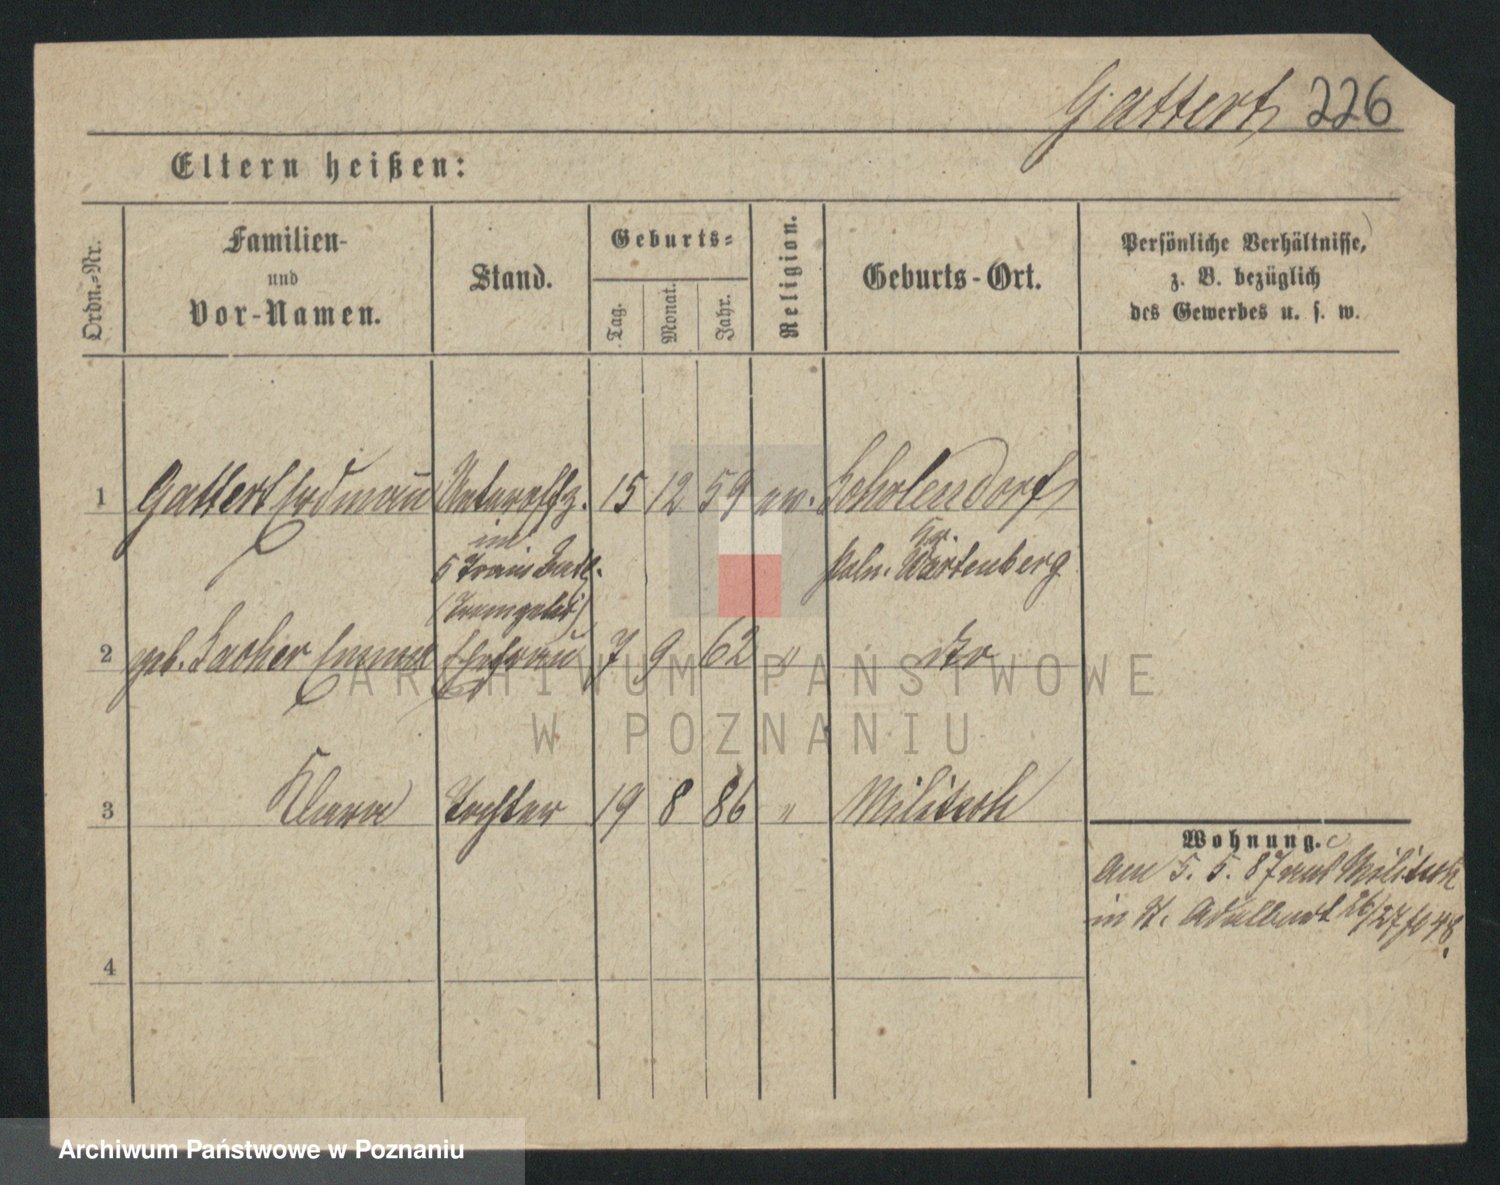 Gattert 226
Eltern heißen:
Ordn.-Nr.
Familien-
und
Vor-Namen.
Stand.
Geburts-
Tag.
Monat.
Jahr.
Religion.
Geburts-Ort.
Persönliche Verhältnisse,
z. B. bezüglich
des Gewerbes u. s. w.
1 Gattert Erdmann Unteroffz. 15 12 59 ev. Scholendorf
im Kr.
5 Train Batl. Poln. Wartenberg
2 geb. Lacher Emma Ehefrau 7 9 62 " dto
3 Klara Tochter 19 8 86 " Militsch
Wohnung.
Am 5. 5. 87 aus Militsch
in St. Adalbert 26/27 48.
4
ARCHIWUM PAŃSTWOWE
W POZNANIU
Archiwum Państwowe w Poznaniu